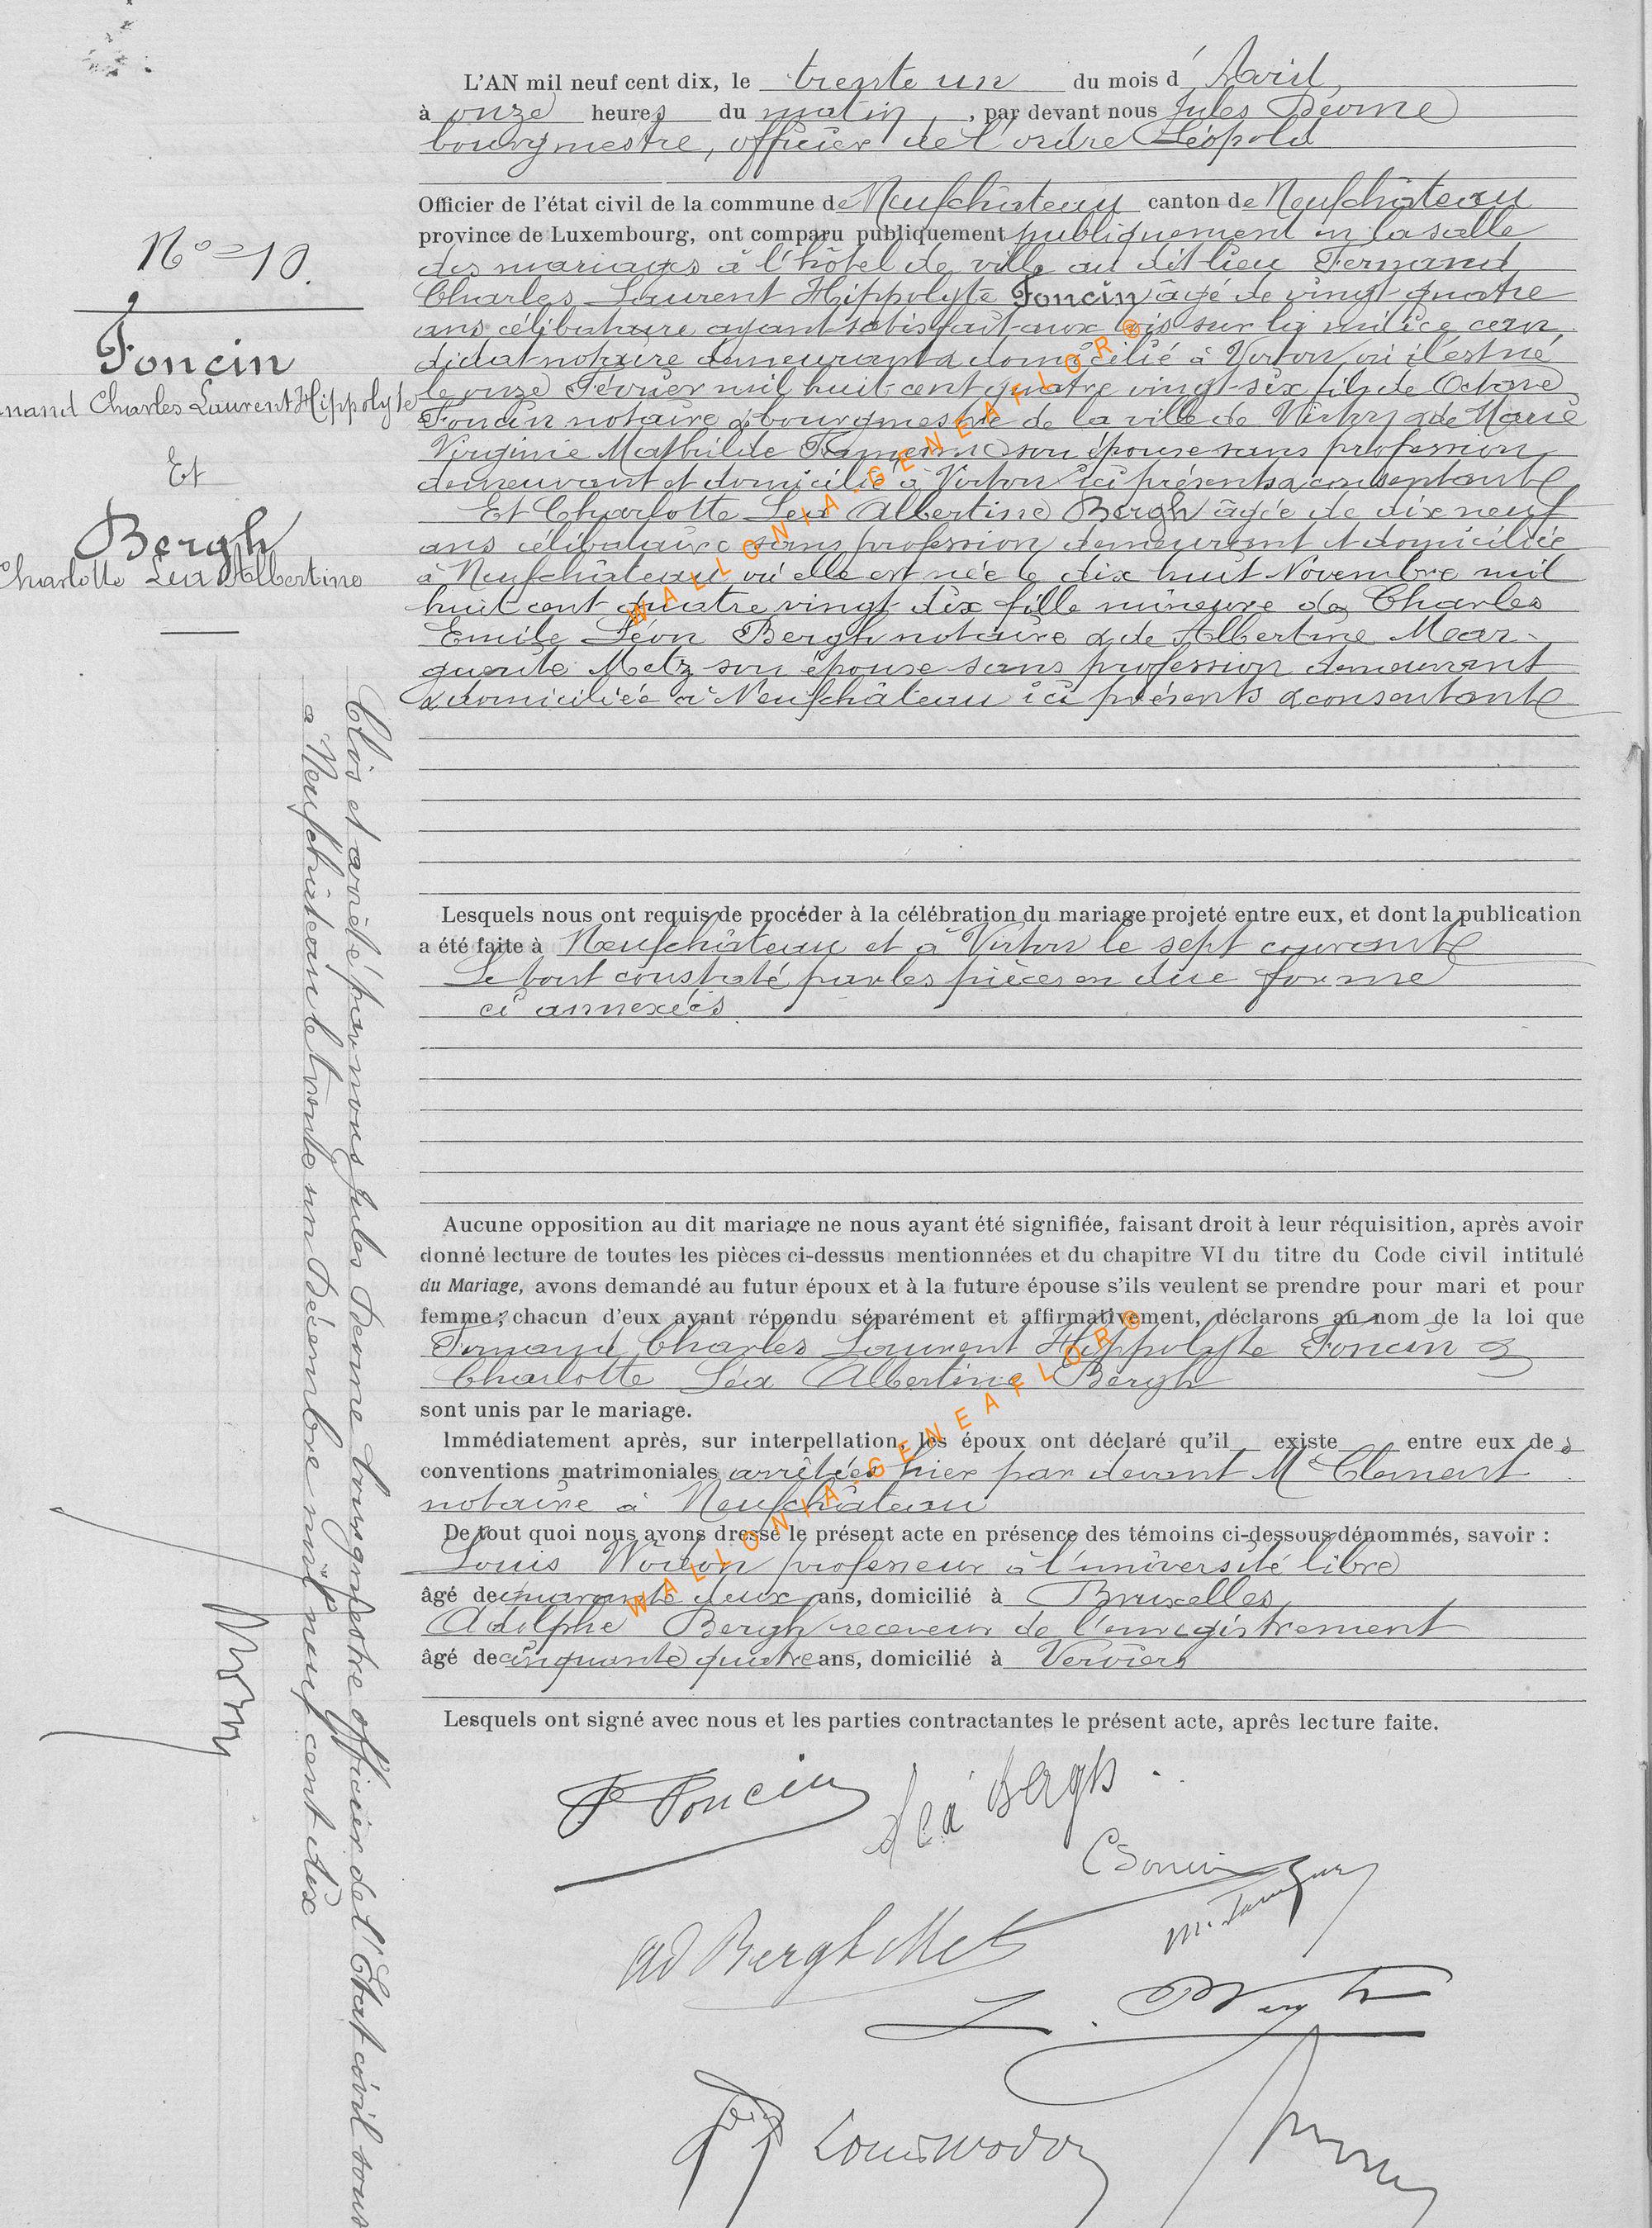 L'AN mil neuf cent dix, le trente un du mois d' Avril
à onze heures du matin, par devant nous Jules
bourgmestre, officier de l'ordre Léopold
Officier de l'état civil de la commune de Neufchâteau canton de Neufchâteau
province de Luxembourg, ont comparu publiquement publiquement en la salle
des mariages à l'hôtel de ville au dit lieu Fernand
Charles Laurent Hippolyte Foncin âgé de vingt quatre
ans célibataire ayant satisfait aux lois sur la milice can
didat notaire demeurant & domicilié à Virton où il est né
le onze Février mil huit cent quatre vingt six fils de Octave
Foncin notaire & bourgmestre de la ville de Virton & de Marie
Virginie Mathilde son épouse sans profession
demeurant et domiciliés à Virton ici présents & consentants
Et Charlotte Léa Albertine Bergh âgée de dix neuf
ans célibataire sans profession demeurant et domiciliée
à Neufchâteau où elle est née le dix huit Novembre mil
huit cent quatre vingt dix fille mineure de Charles
Emile Léon Bergh notaire & de Albertine Mar-
guerite Metz son épouse sans profession demeurant
& domiciliée à Neufchâteau ici présents & consentants
N° = 10.
Foncin
nand Charles Laurent Hippolyte
Et
Bergh
Charlotte Léa Albertine
Clos et arrêté par nous Jules bourgmestre officier de l'Etat civil sous
à Neufchâteau le trente un Décembre mil neuf cent dix
Lesquels nous ont requis de procéder à la célébration du mariage projeté entre eux, et dont la publication
a été faite à Neufchâteau et à Virton le sept courant
Le tout constaté par les pièces en due forme
ci annexées
Aucune opposition au dit mariage ne nous ayant été signifiée, faisant droit à leur réquisition, après avoir
donné lecture de toutes les pièces ci-dessus mentionnées et du chapitre VI du titre du Code civil intitulé
du Mariage, avons demandé au futur époux et à la future épouse s'ils veulent se prendre pour mari et pour
femme ; chacun d'eux ayant répondu séparément et affirmativement, déclarons au nom de la loi que
Fernand Charles Laurent Hippolyte Foncin &
Charlotte Léa Albertine Bergh
sont unis par le mariage.
Immédiatement après, sur interpellation, les époux ont déclaré qu'il existe entre eux des
conventions matrimoniales arrêtées hier par devant Me Clement
notaire à Neufchâteau
De tout quoi nous avons dressé le présent acte en présence des témoins ci-dessous dénommés, savoir :
Louis Wodon professeur à l'université libre
âgé de quarante deux ans, domicilié à Bruxelles
Adolphe Bergh receveur de l'enregistrement
âgé de cinquante quatre ans, domicilié à Verviers
Lesquels ont signé avec nous et les parties contractantes le présent acte, après lecture faite.
F Foncin
Léa Bergh.
Ad Bergh Metz
L. Bergh
Louis Wodon
WALLONIA-GENEAFLOR®
WALLONIA-GENEAFLOR®